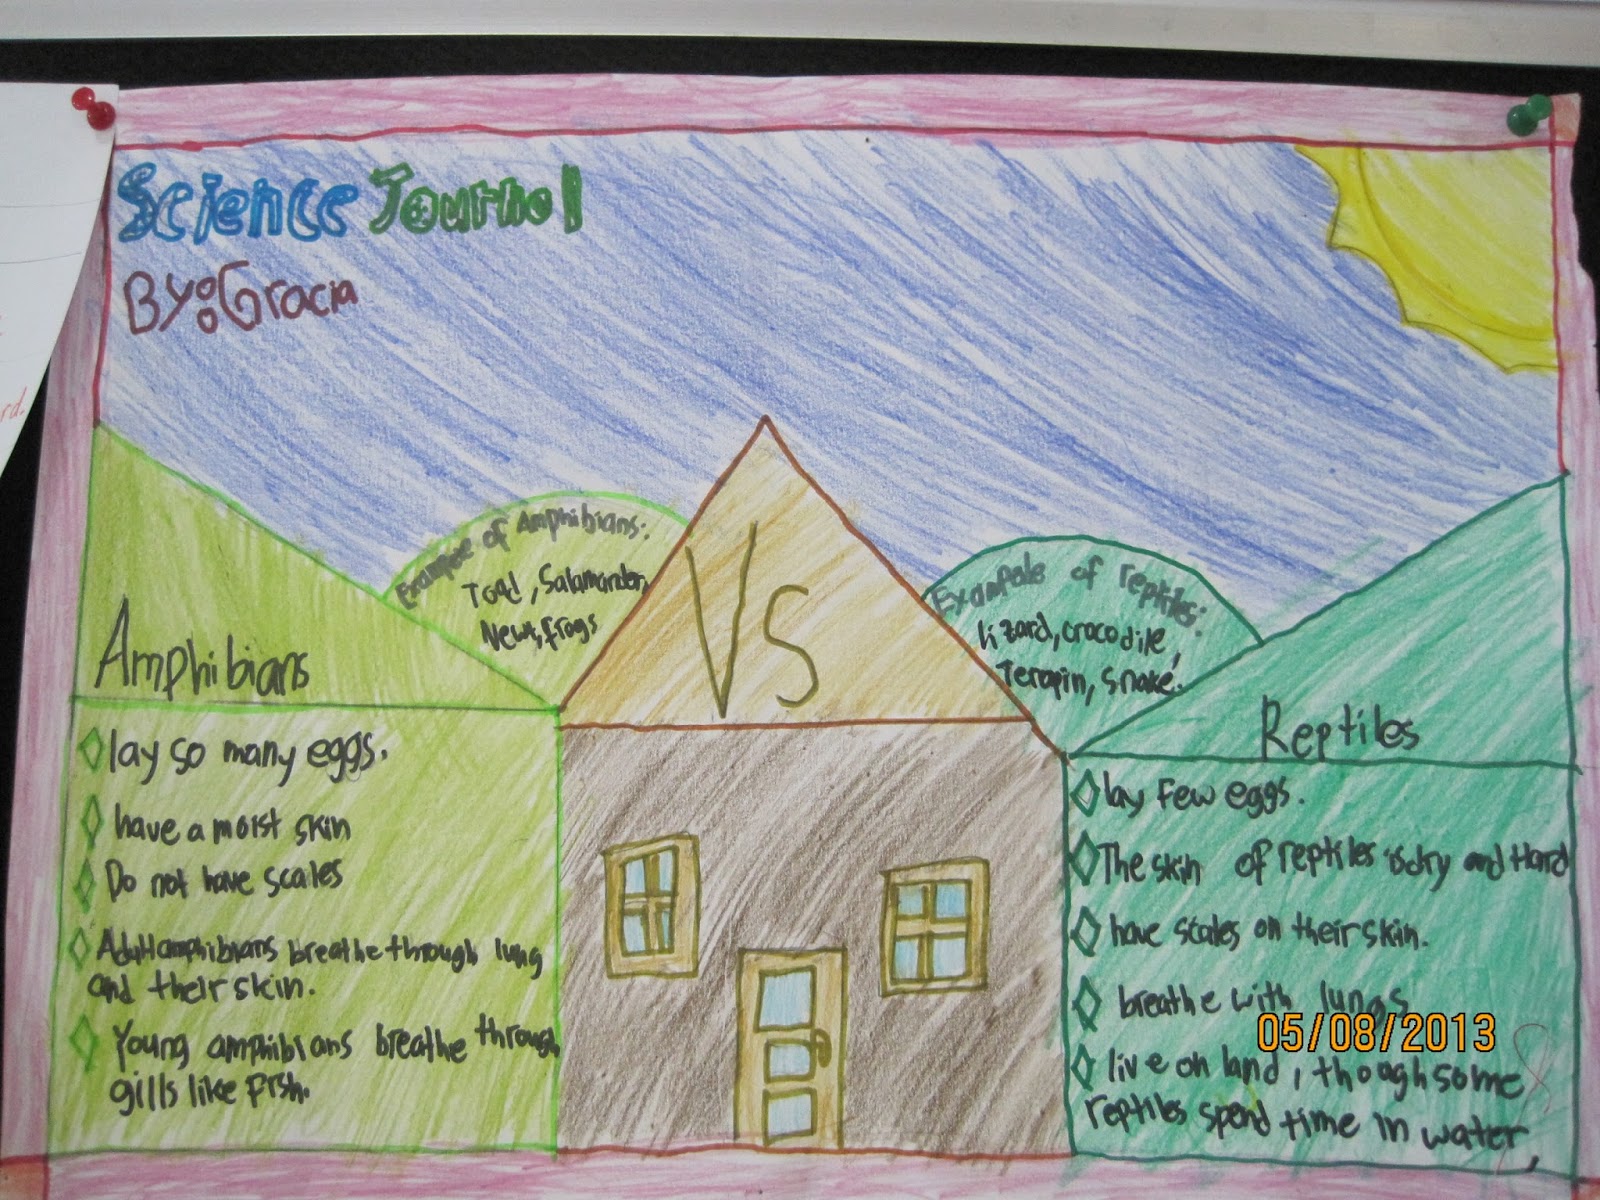 Science Journal
By: Gracia
Example of Amphibians:
Toad, Salamander,
Newt, frogs
VS
Exampels of reptiles:
lizard, crocodile,
Terapin, Snake.
Amphibians
lay so many eggs.
have a moist skin
Do not have scales
Adult amphibians breathe through lung
and their skin.
Young amphibians breathe through
gills like fish.
Reptiles
lay few eggs.
The skin of reptiles is dry and Hard
have scales on their skin.
breathe with lungs
live on land, though some
reptiles spend time in water,
05/08/2013
rd.